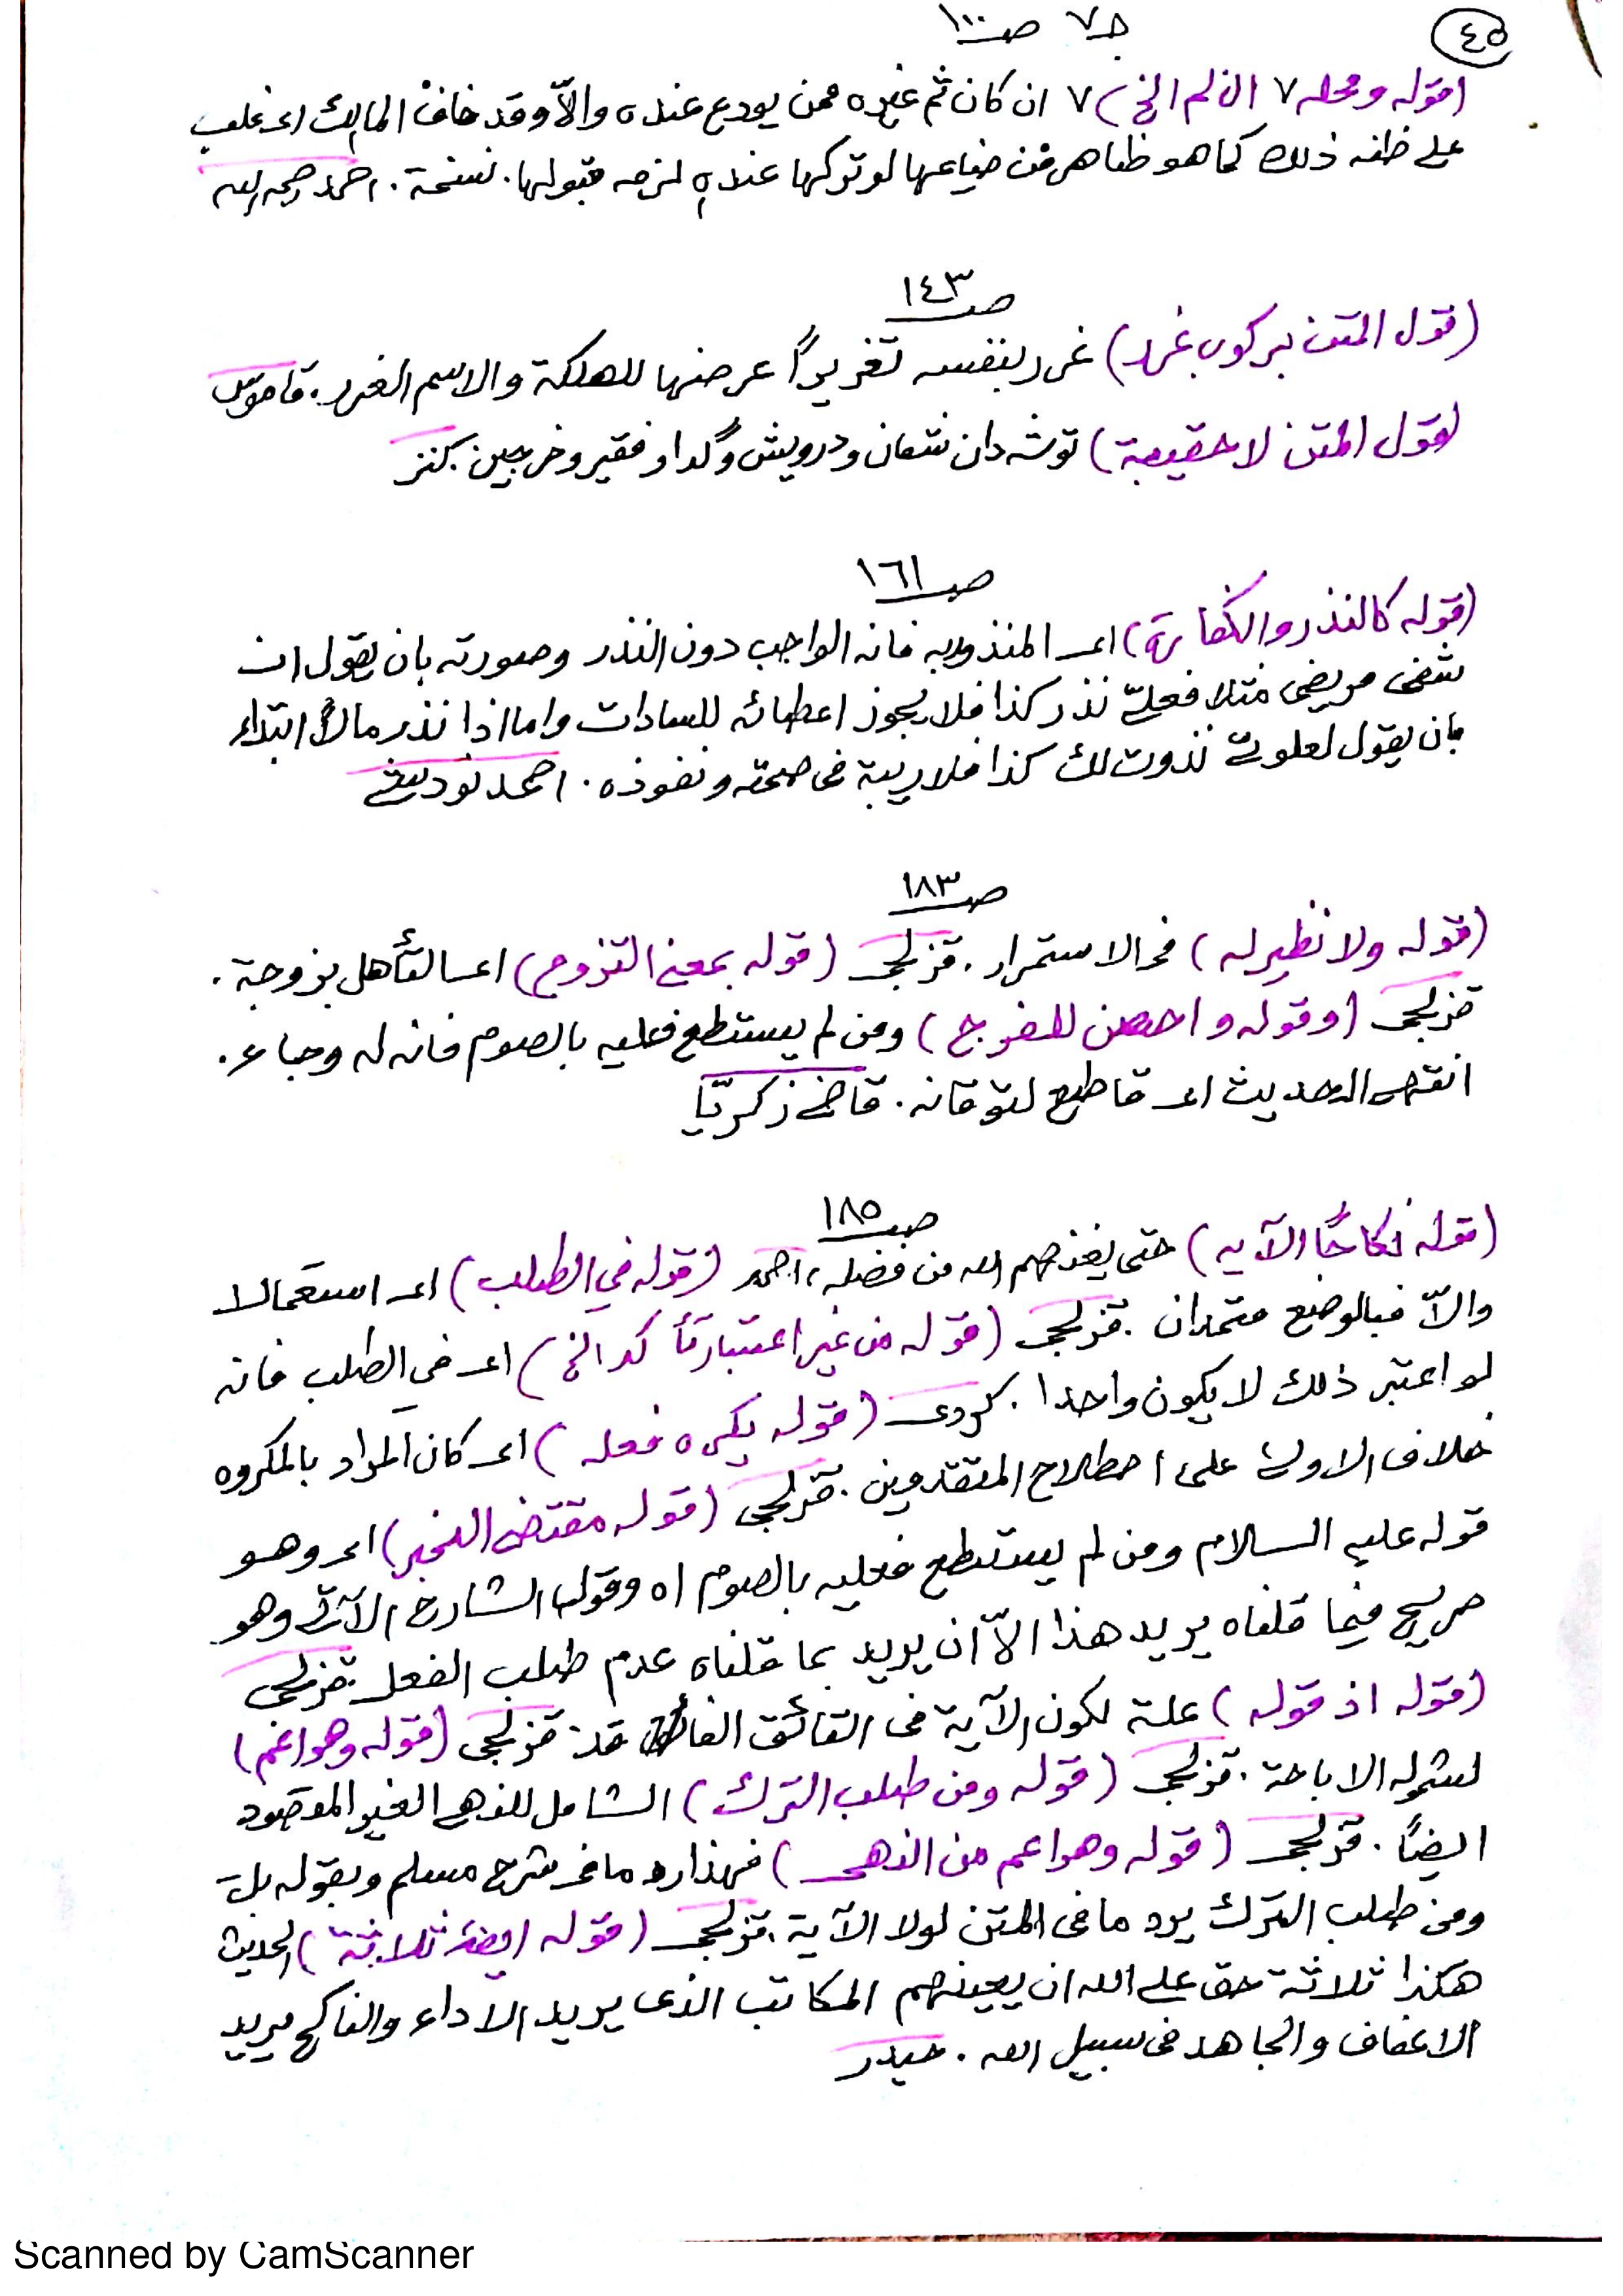 ٤٥
جـ٧ صـ١٠٠
(قوله ومحله ٧ ان لم الخ) ٧ ان كان ثم غيره ممن يودع عنده والاّ وقد خاف المالك اى غلب
على ظنه ذلك كما هو ظاهر من ضياعها لو تركها عنده لزمه قبولها. نسخة. احمد رحمه الله
صـ١٤٣
(قول المتن بركوب غرر) غرر بنفسه تغريراً عرضها للهلكة والاسم الغرر. قاموس
(قول المتن لا حقيبة) توشه دان شعان ودرويش وگدا وفقير وخرجين. كنز
صـ١٦١
(قوله كالنذر والكفارة) اى المنذور به فانه الواجب دون النذر وصورته بان يقول ان
شفى مريضى مثلا فعليّ نذر كذا فلا يجوز اعطائه للسادات واما اذا نذر مالاً ابتداء
بان يقول لعلوىّ نذرت لك كذا فلا ريبة فى صحته ونفوذه. احمد نودشى
صـ١٨٣
(قوله ولا نظير له) فى الاستمرار. قزلجى (قوله بمعنى التزوج) اى التأهل بزوجة.
قزلجى (وقوله واحصن للفرج) ومن لم يستطع فعليه بالصوم فانه له وجاء.
انتهى الحديث اى قاطع لتوقانه. قاضى زكريّا
صـ١٨٥
(قوله نكاحًا الآيه) حتى يغنيهم الله من فضله، احمد (قوله في الطلب) اى استعمالا
والاّ فبالوضع متحدان. قزلجى (قوله من غير اعتبار تأكد الخ) اى في الطلب فانه
لو اعتبر ذلك لا يكون واحدا. كردى (قوله يكره فعله) اى كان المراد بالمكروه
خلاف الاولى على اصطلاح المتقدمين. قزلجى (قوله مقتضى الخبر) اى وهو
قوله عليه السلام ومن لم يستطع فعليه بالصوم اه وقول الشارح الآتى وهو
صريح فيما قلناه يريد هذا الاّ ان يريد بما قلناه عدم طلب الفعل. قزلجى
(قوله اذ قوله) علة لكون الآية فى التائق الفاقد قزلجى (قوله وهو اعم)
لشموله الاباحة. قزلجى (قوله ومن طلب الترك) الشامل للنهى الغير المقصود
ايضاً. قزلجى (قوله وهو اعم من النهى) فهذا رد ما فى شرح مسلم وبقوله بل
ومن طلب الترك يرد ما فى المتن لولا الآية. قزلجى (قوله ايضا ثلاثة) الحديث
هكذا ثلاثة حق على الله ان يعينهم المكاتب الذى يريد الاداء والناكح يريد
الاعفاف والمجاهد فى سبيل الله. حيدر
Scanned by CamScanner